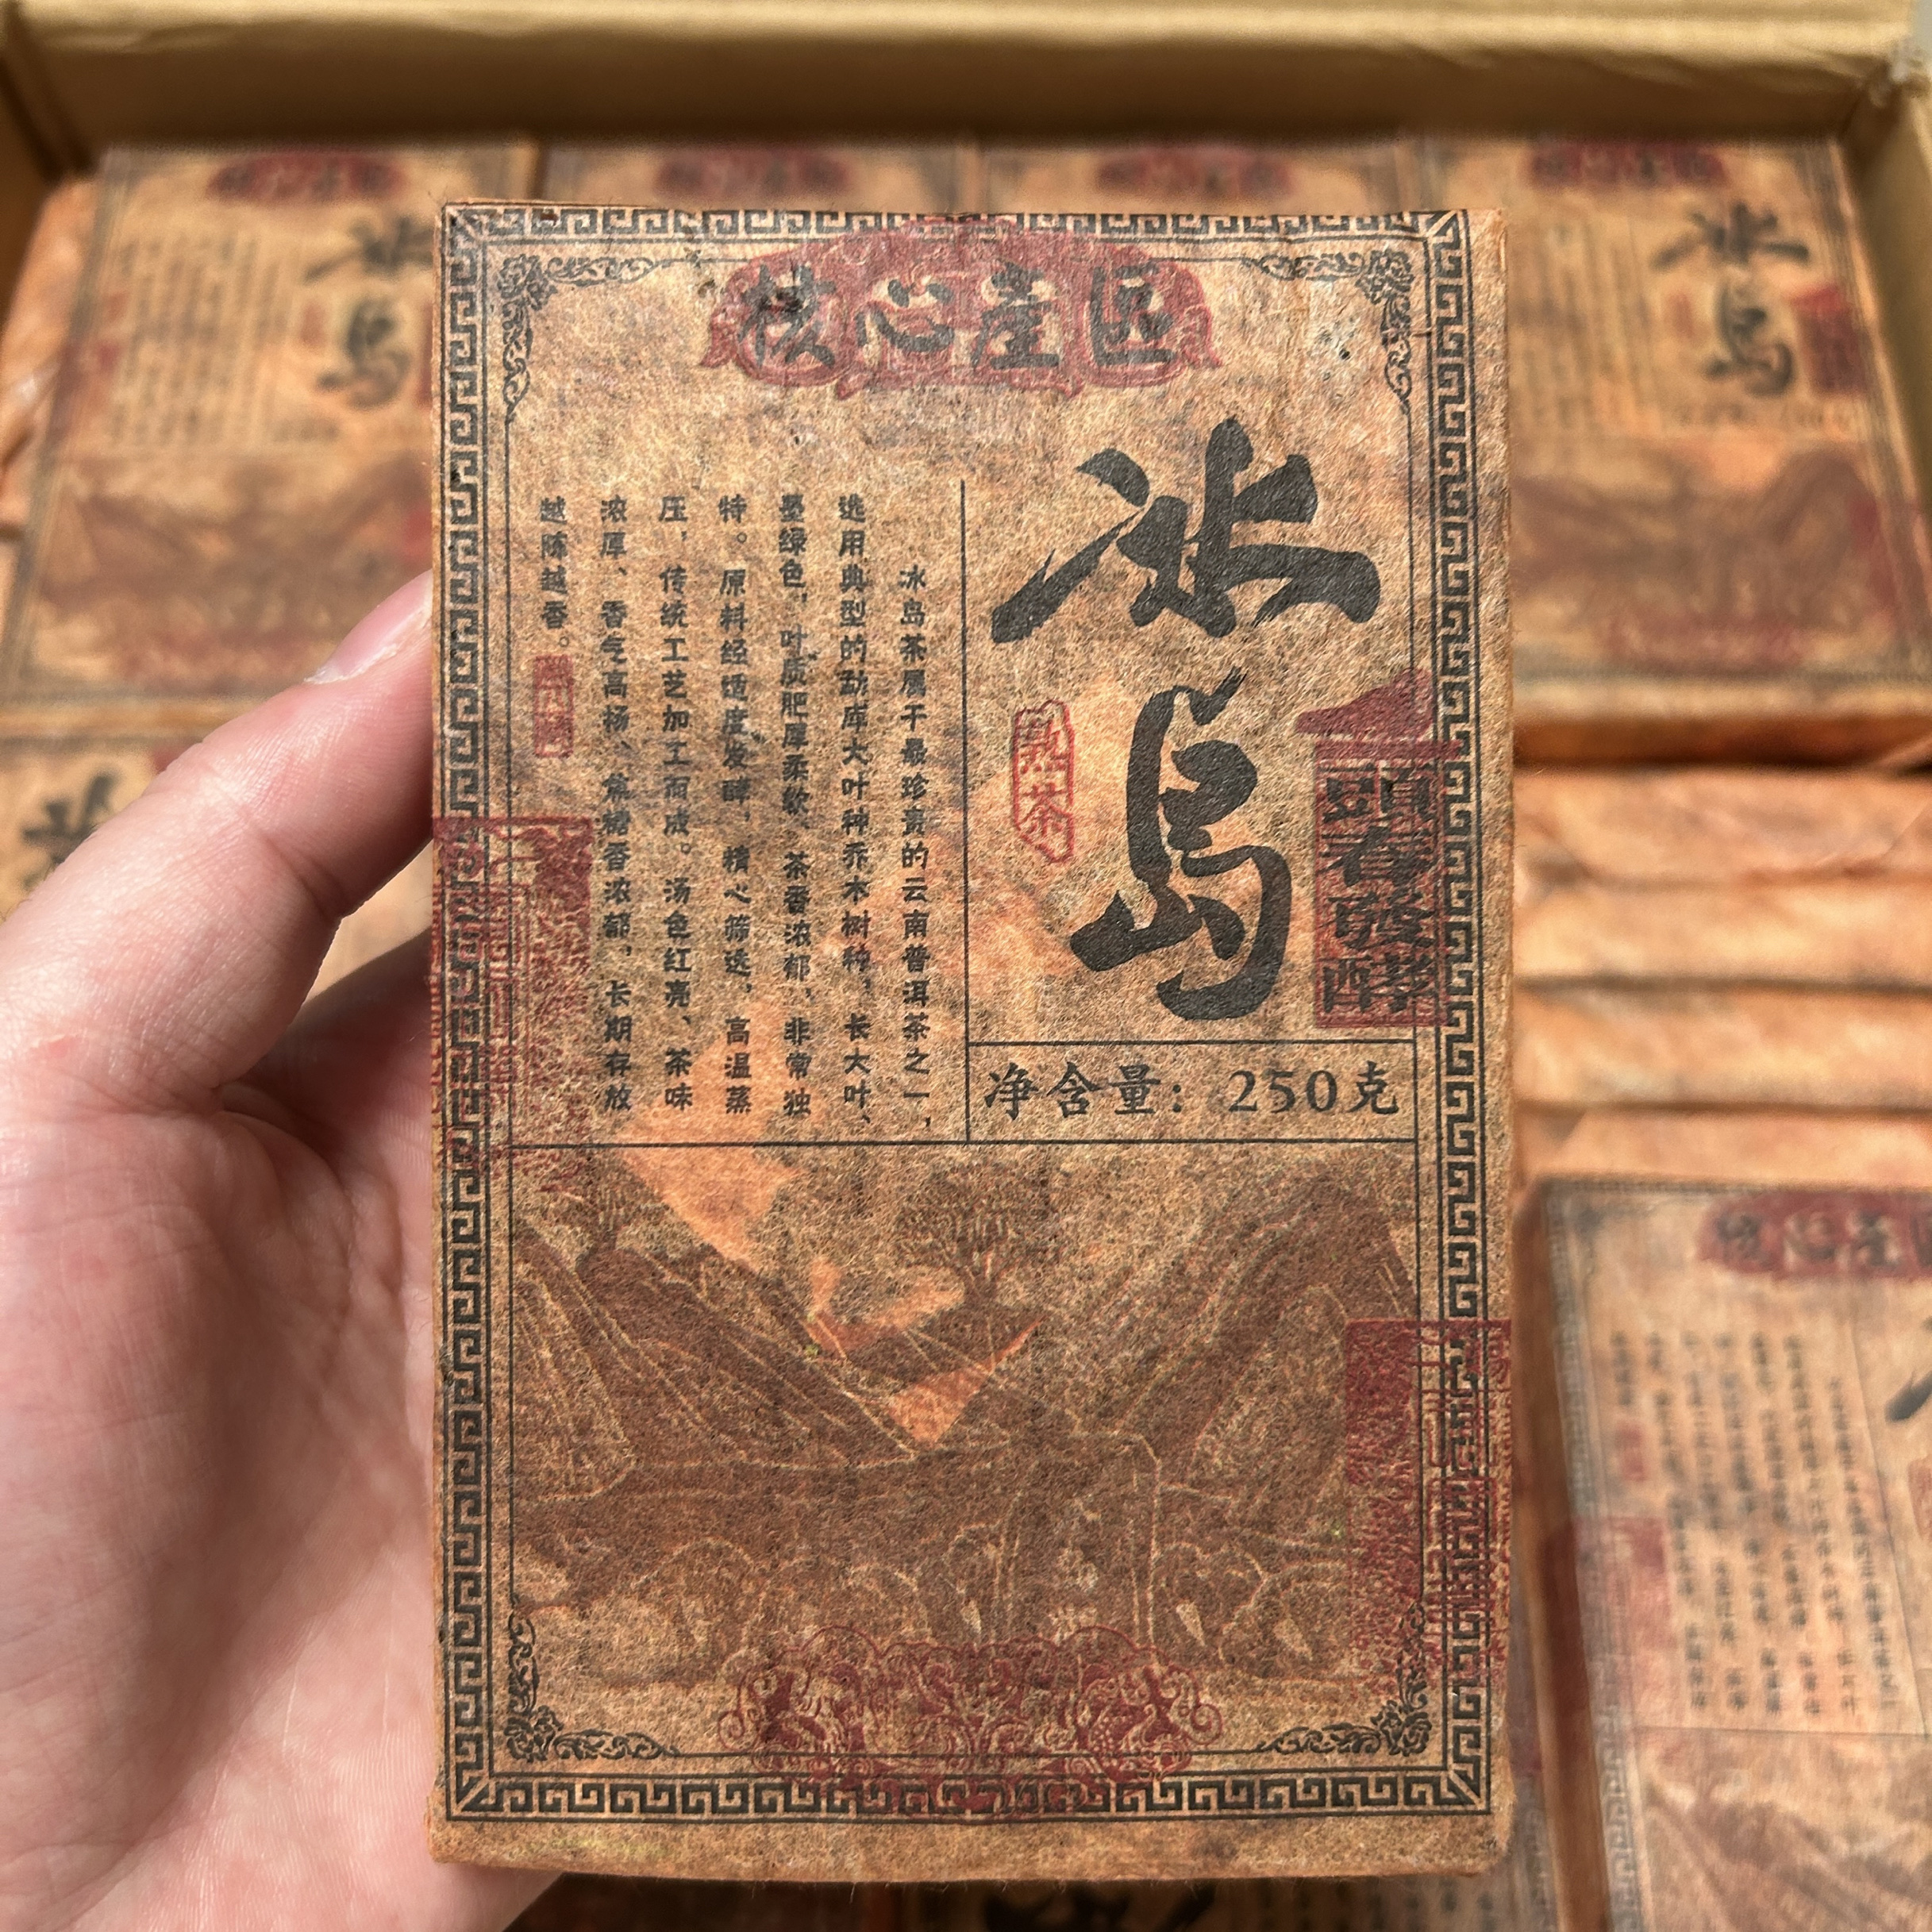 核心產区
冰島
熟茶
頭春發酵
净含量：250克
冰岛茶属于最珍贵的云南普洱茶之一，
选用典型的勐库大叶种乔木树种，长大叶、
墨绿色，叶质肥厚柔软、茶香浓郁、非常独
特。原料经适度发酵，精心筛选，高温蒸
压，传统工艺加工而成。汤色红亮、茶味
浓厚、香气高扬、焦糖香浓郁，长期存放
越陈越香。